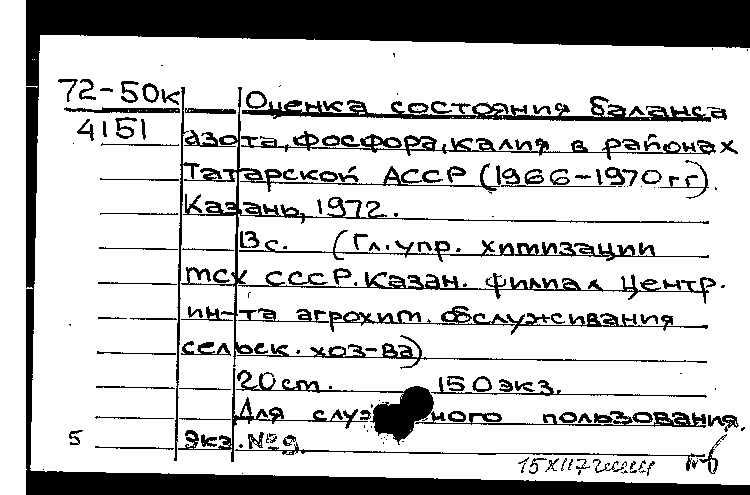 72-50к Оценка состояния баланса
4151 азота, фосфора, калия в районах
Татарской АССР (1966-1970 гг).
Казань, 1972.
13 с. (Гл. упр. химизации
МСХ СССР. Казан. филиал Центр.
ин-та агрохим. обслуживания
сельск. хоз-ва)
20 cm. 150 экз.
Для пользования.
5 Экз. № 9.